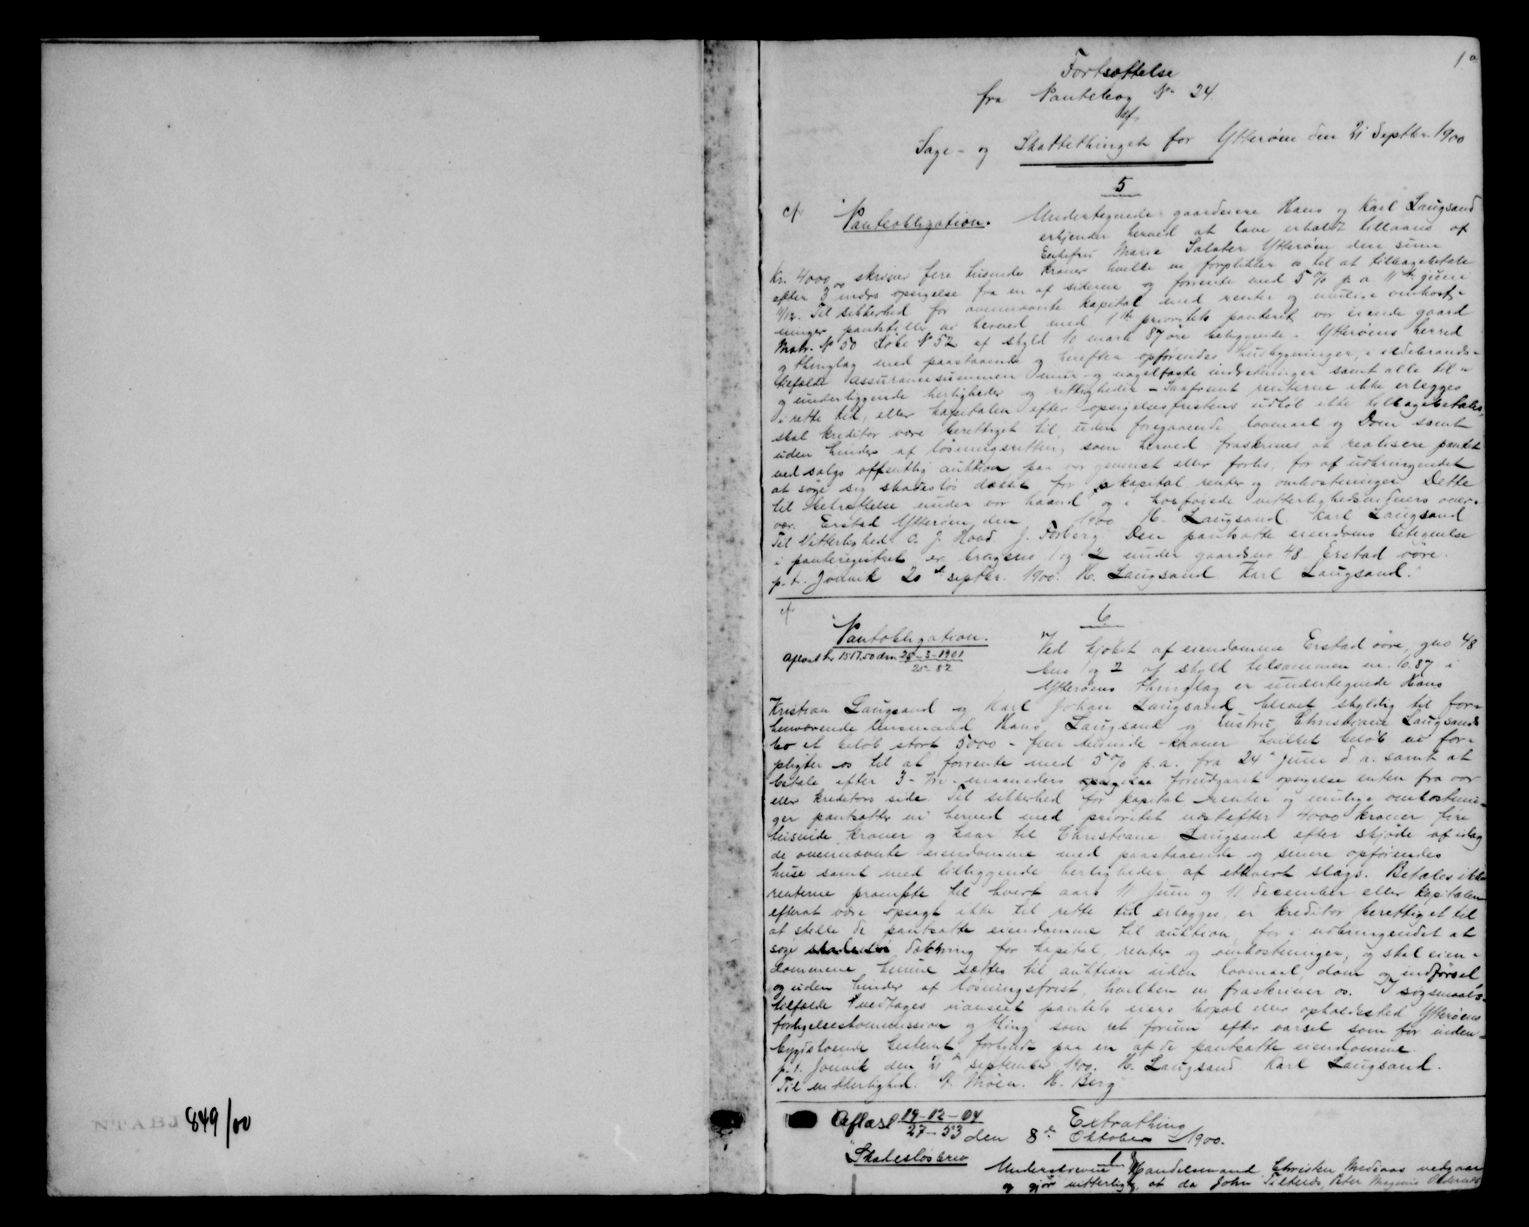 1a
Fortsættelse
fra Pantebog No 24
af
Sage- og Skattethinget for Ytterøen den 21 Septbr. 1900
5
cfr Pantobligation. Undertegnede gaardeiere Hans og Karl Laugsand
erkjender herved at have erholdt tillaans af
Enkefru Marie Salater Ytterøen den sum
Kr. 4000,00 skriver fire tusinde kroner hvilke vi forplikter os til at tilbagebetale
efter 3 mdrs opsigelse fra en af siderne og forrente med 5 % p. a. 11te juni
11/12. Til sikkerhed for ovennævnte kapital med renter og mulige omkost-
ninger pantstiller vi herved med 1ste prioritets panteret vor eiende gaard
Matr. No 50 Løbe No 52 af skyld 10 mark 87 øre beliggende i Ytterøens herred
og thinglag med paastaaende og herefter opførendes husbygninger, i ildebrands-
tilfælde assurancesummen mur- og nagelfaste indretninger samt alle til-
og underliggende herligheder og rettigheder – Saafremt renterne ikke erlægges
i rette tid, eller kapitalen efter opsigelsesfristens udløb ikke tilbagebetales,
skal kreditor være berettiget til, uden foregaaende lovmaal og Dom samt
uden hinder af løsningsretten, som herved fraskrives at realisere pantet
ved salgs offentlig auktion paa vor gevinst eller forlis, for af udbringendet
at søge sig skadesløs dækket for kapital, renter og omkostninger. Dette
til bekræftelse under vor haand og i hosføiede vitterlighedsvidners over-
vær. Erstad Ytterøen den 1900 H. Laugsand Karl Laugsand
Til Vitterlighed: O. J. Hoad J. Forberg. Den pantsatte eiendoms betegnelse
i panteregistret er brugsno 1 og 2 under gaardsno 48 Erstad øvre.
p. t. Jonvik 20de septbr. 1900. H. Laugsand Karl Laugsand."
6
cfr Pantobligation. Ved kjøbet af eiendommene Erstad øvre, gno 48
Aflæst kr 1517,50 den 28-3-1901 bno 1 og 2 af skyld tilsammen m. 10.87 i
25-82 Ytterøens thinglag er undertegnede Hans
Kristian Laugsand og Karl Johan Laugsand blevet skyldig til for-
henværende lensmand Hans Laugsand og hustru Christiane Laugsands
bo et beløb stort 5000 – fem tusinde – kroner hvilket beløb vi for-
pligter os til at forrente med 5 % p. a. fra 24 juni d. a. samt at
betale efter 3 – tre – maaneders forudgaaet opsigelse enten fra vor
eller kreditors side. Til sikkerhed for kapital renter og mulige omkostnin-
ger pantsætter vi herved med prioritet næstefter 4000 kroner fire
tusinde kroner og kaar til Christiane Laugsand efter skjøde af idag
de ovennævnte eiendomme med paastaaende og senere opførendes
huse samt med tilliggende herligheder af ethvert slags. Betales ikke
renterne prompte til hvert aars 11 juni og 11 december eller kapitalen
efterat være opsagt ikke til rette tid erlægges, er kreditor berettiget til
at stille de pantsatte eiendomme til auktion, for i udbringendet at
søge skadesløs dækning for kapital, renter og omkostninger, og skal eien-
dommene kunne sættes til auktion uden lovmaal, dom og indførsel
og uden hinder af løsningsfrist, hvilken vi fraskriver os. I søgsmaals-
tilfælde vedtages uanseet pantets eiers bopæl eller opholdssted Ytterøens
forligelseskommission og thing som ret forum efter varsel som for inden-
bygdsboende bestemt forkyndt paa en af de pantsatte eiendomme
p. t. Jonvik den 21de september 1900. H. Laugsand Karl Laugsand.
Til vitterlighed. P. Moen. H. Berg
Aflæst 19-12-04 Extrathing
27-53 den 8de Oktober 1900.
1
Skadesløsbrev Underskrevne Handelsmand Christen Mediaas vedgaar
og gjør vitterligt, at da John Tilberds, Peter Magnus
NTABJ 849/00